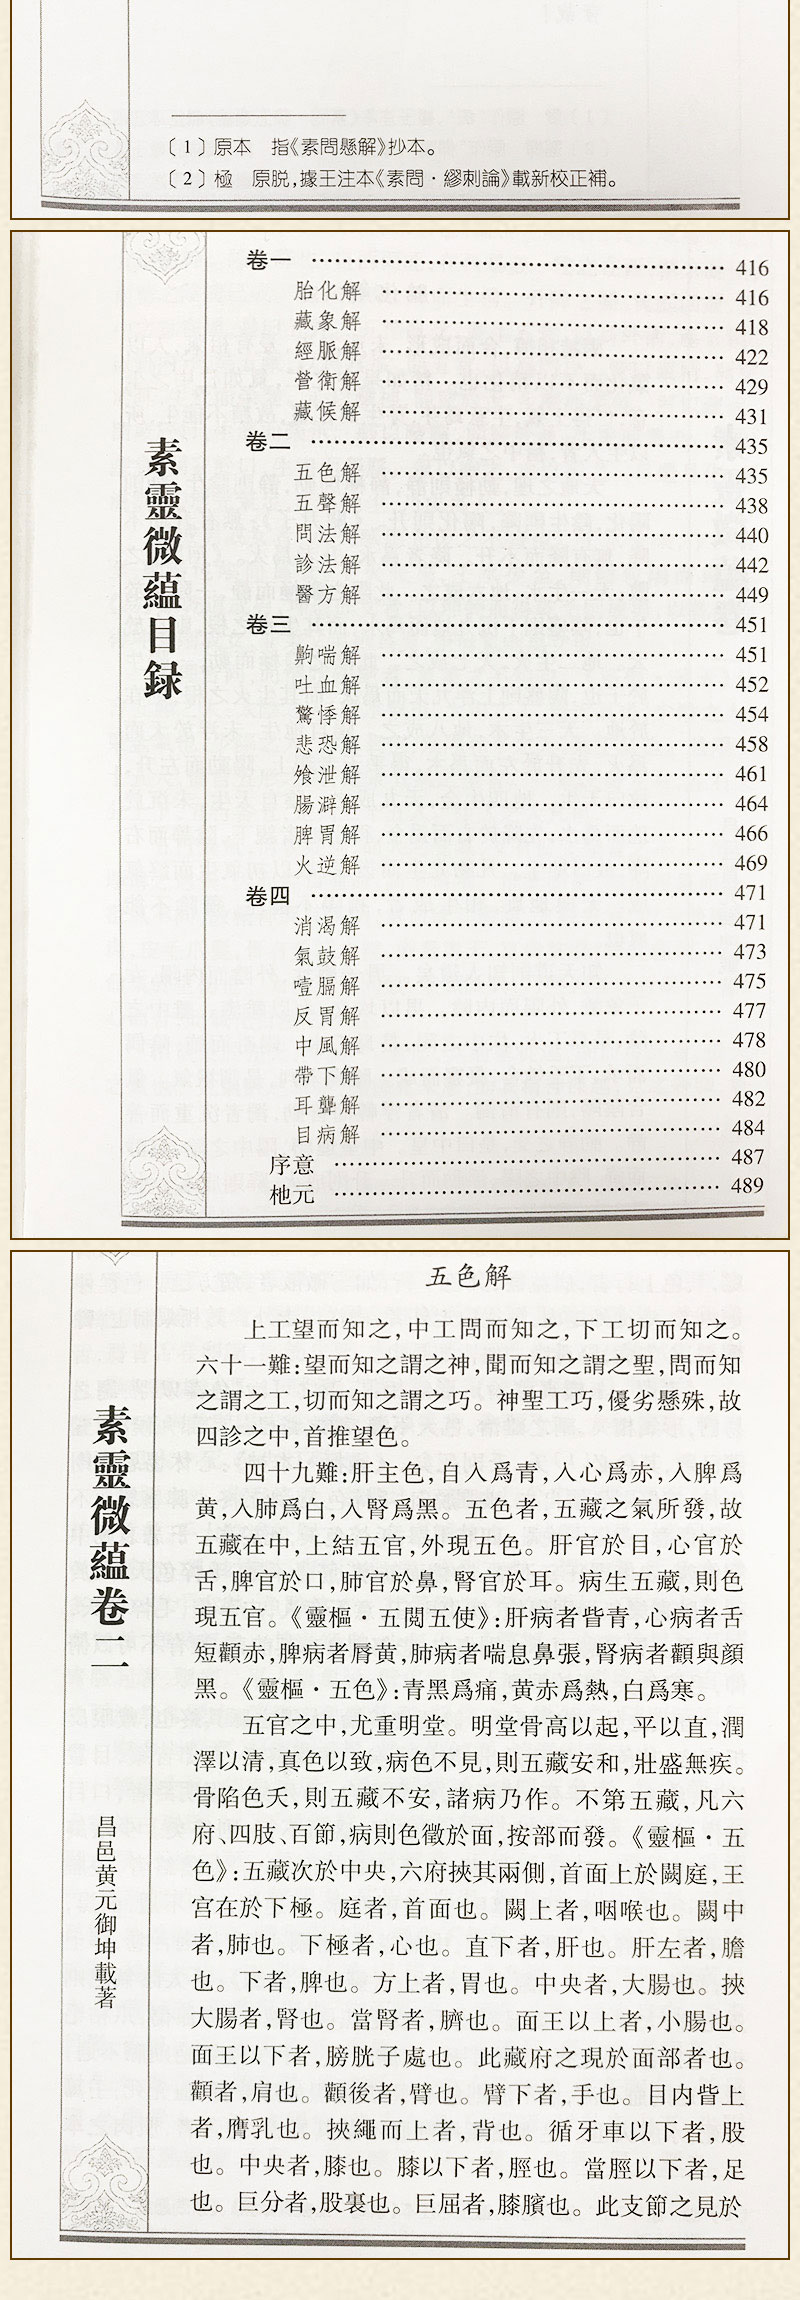 〔1〕原本　指《素問懸解》抄本。
〔2〕極　原脱,據王注本《素問·繆刺論》載新校正補。
素靈微蘊目録
卷一 …… 416
胎化解 …… 416
藏象解 …… 418
經脈解 …… 422
營衛解 …… 429
藏候解 …… 431
卷二 …… 435
五色解 …… 435
五聲解 …… 438
問法解 …… 440
診法解 …… 442
醫方解 …… 449
卷三 …… 451
齁喘解 …… 451
吐血解 …… 452
驚悸解 …… 454
悲恐解 …… 458
飧泄解 …… 461
腸澼解 …… 464
脾胃解 …… 466
火逆解 …… 469
卷四 …… 471
消渴解 …… 471
氣鼓解 …… 473
噎膈解 …… 475
反胃解 …… 477
中風解 …… 478
帶下解 …… 480
耳聾解 …… 482
目病解 …… 484
序意 …… 487
杝元 …… 489
素靈微蘊卷二
昌邑黄元御坤載著
五色解
上工望而知之,中工問而知之,下工切而知之。
六十一難:望而知之謂之神,聞而知之謂之聖,問而知
之謂之工,切而知之謂之巧。神聖工巧,優劣懸殊,故
四診之中,首推望色。
四十九難:肝主色,自入爲青,入心爲赤,入脾爲
黄,入肺爲白,入腎爲黑。五色者,五藏之氣所發,故
五藏在中,上結五官,外現五色。肝官於目,心官於
舌,脾官於口,肺官於鼻,腎官於耳。病生五藏,則色
現五官。《靈樞·五閲五使》:肝病者眥青,心病者舌
短顴赤,脾病者脣黄,肺病者喘息鼻張,腎病者顴與顔
黑。《靈樞·五色》:青黑爲痛,黄赤爲熱,白爲寒。
五官之中,尤重明堂。明堂骨高以起,平以直,潤
澤以清,真色以致,病色不見,則五藏安和,壯盛無疾。
骨陷色夭,則五藏不安,諸病乃作。不第五藏,凡六
府、四肢、百節,病則色徵於面,按部而發。《靈樞·五
色》:五藏次於中央,六府挾其兩側,首面上於闕庭,王
宫在於下極。庭者,首面也。闕上者,咽喉也。闕中
者,肺也。下極者,心也。直下者,肝也。肝左者,膽
也。下者,脾也。方上者,胃也。中央者,大腸也。挾
大腸者,腎也。當腎者,臍也。面王以上者,小腸也。
面王以下者,膀胱子處也。此藏府之現於面部者也。
顴者,肩也。顴後者,臂也。臂下者,手也。目内眥上
者,膺乳也。挾繩而上者,背也。循牙車以下者,股
也。中央者,膝也。膝以下者,脛也。當脛以下者,足
也。巨分者,股裏也。巨屈者,膝臏也。此支節之見於